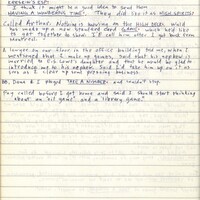 I think it might be a good idea to send them
HAVING A WONDERFUL TIME. They did like it as HIGH SPIRITS!
Called Arthur. Nothing is moving to the HIGH SEAS. Would
has made up a new standard deed GAME, which he'd like
to get together to show. I'll call him after I get back from
Montreal.
A lawyer on our floor in the office building told me, when I
mentioned that I make up games, said that his nephew is
married to C.S. Lewis's daughter and that he would be glad to
introduce me to his nephew. Said I'd take him up on it as
soon as I clear up some pressing business.
Dana & I played TAKE A NUMBER and couldn't stop.
Peg called before I got home and said I should start thinking
about an "oil game" and a library game."